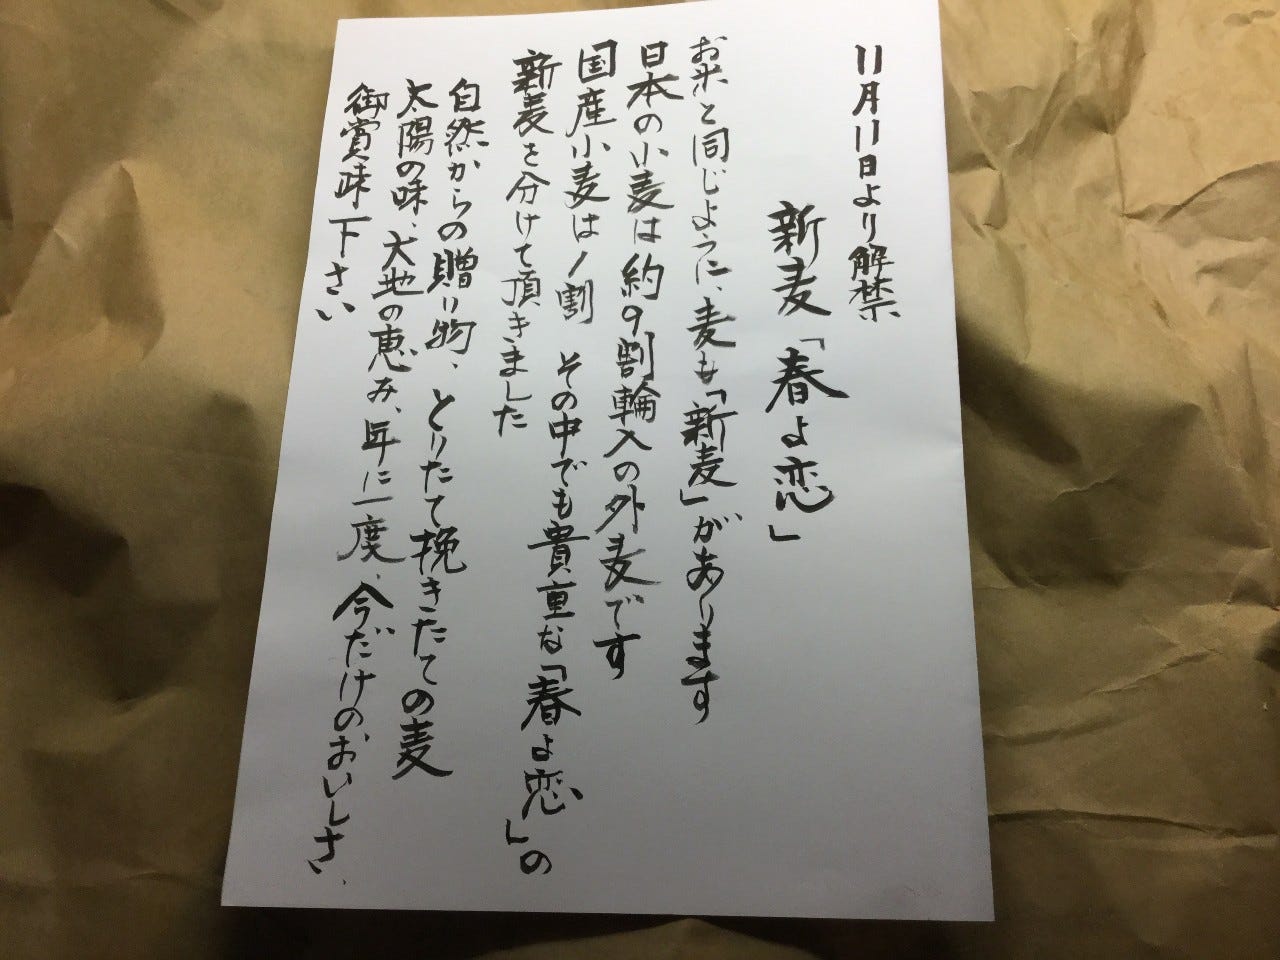 11月11日より解禁
新麦「春よ恋」
お米と同じように、麦も「新麦」があります
日本の小麦は約9割輪入の外麦です
国産小麦は1割 その中でも貴重な「春よ恋」の
新麦を分けて頂きました
自然からの贈り物、とりたて挽きたての麦
太陽の味、大地の恵み、年に一度、今だけのおいしさ、
御賞味下さい